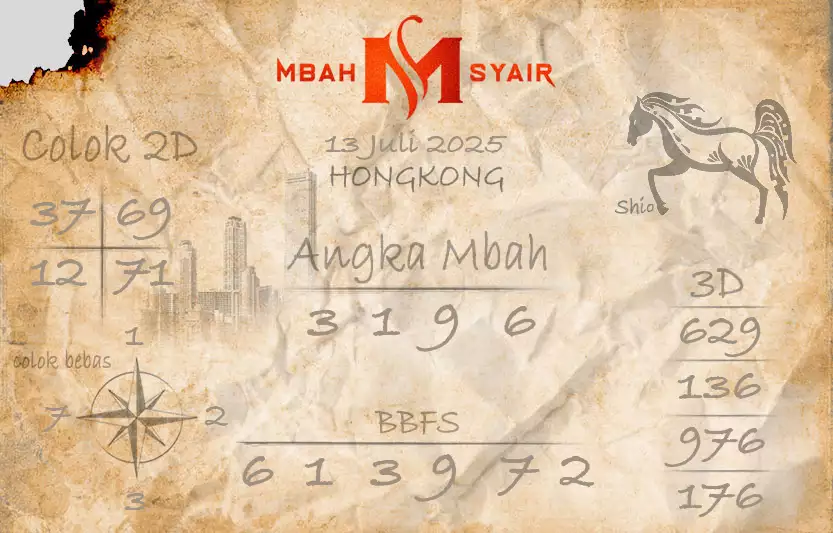 MBAH M SYAIR
13 Juli 2025
HONGKONG
Colok 2D
37 69
12 71
Shio
Angka Mbah
3 1 9 6
3D
629
136
976
176
colok bebas
1
7 2
3
BBFS
6 1 3 9 7 2